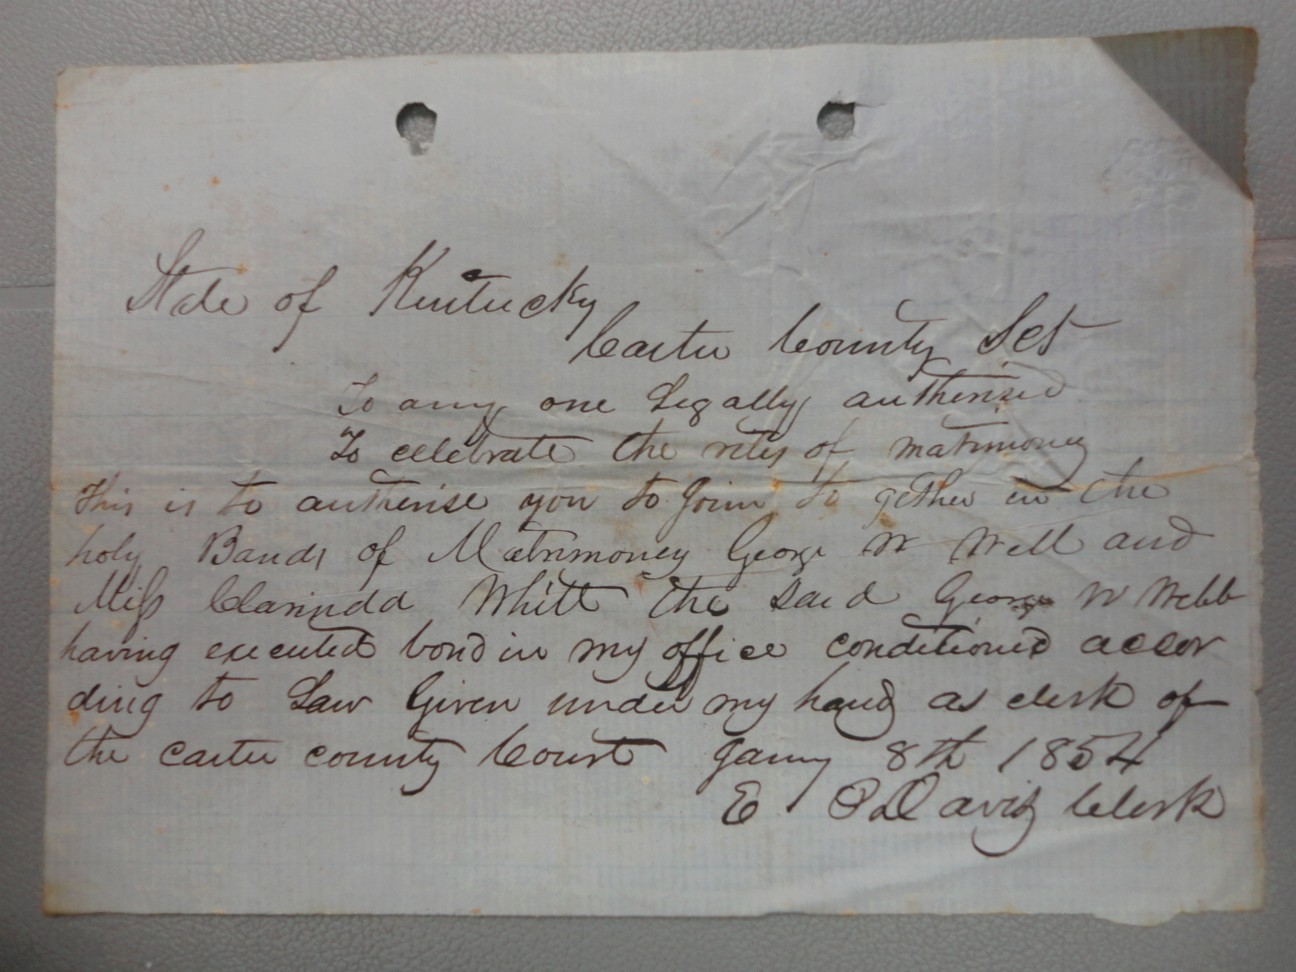 State of Kentucky
Carter County Sct
To any one Legally authorised
To celebrate the rites of matrimoney
This is to autherise you to Join to gether in the
holy Bands of Matrimoney George W Webb and
Miss Clarinda Whitt the said George W Webb
having executed bond in my office conditioned accor
ding to Law Given under my hand as clerk of
the carter county Court Jany 8th 1854
E. Davis Clerk